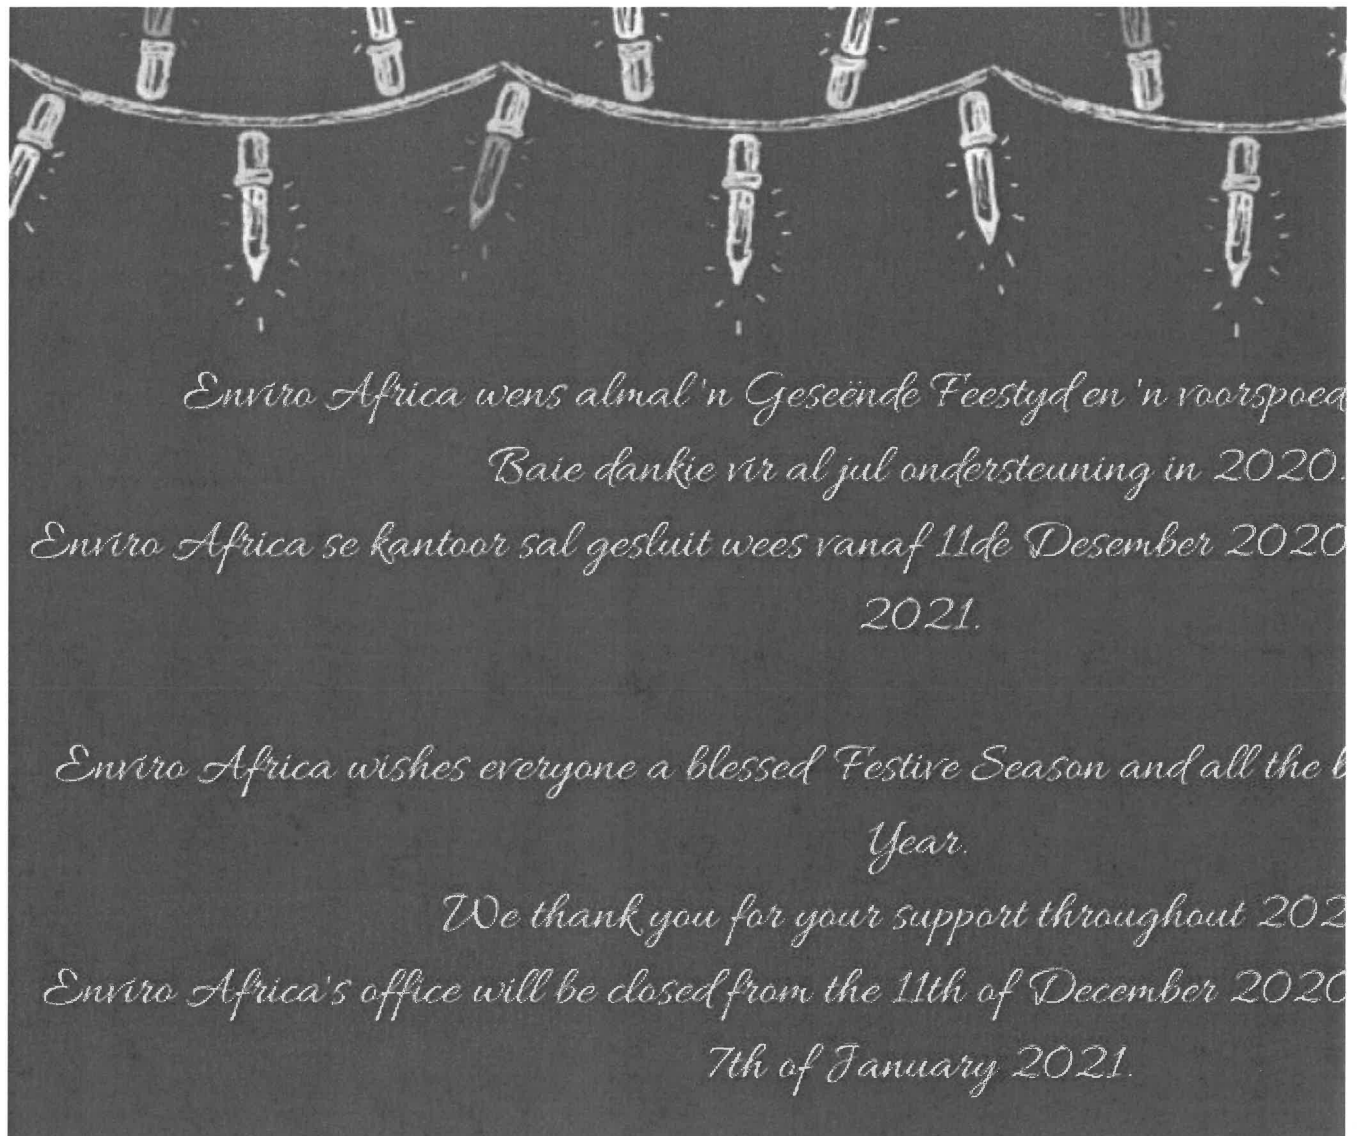 Enviro Africa wens almal 'n Geseënde Feestyd en 'n
Baie dankie vir al jul ondersteuning in 2020.
Enviro Africa se kantoor sal gesluit wees vanaf 11de Desember 2020
2021.
Enviro Africa wishes everyone a blessed Festive Season and all the
Year.
We thank you for your support throughout
Enviro Africa's office will be closed from the 11th of December 2020
7th of January 2021.